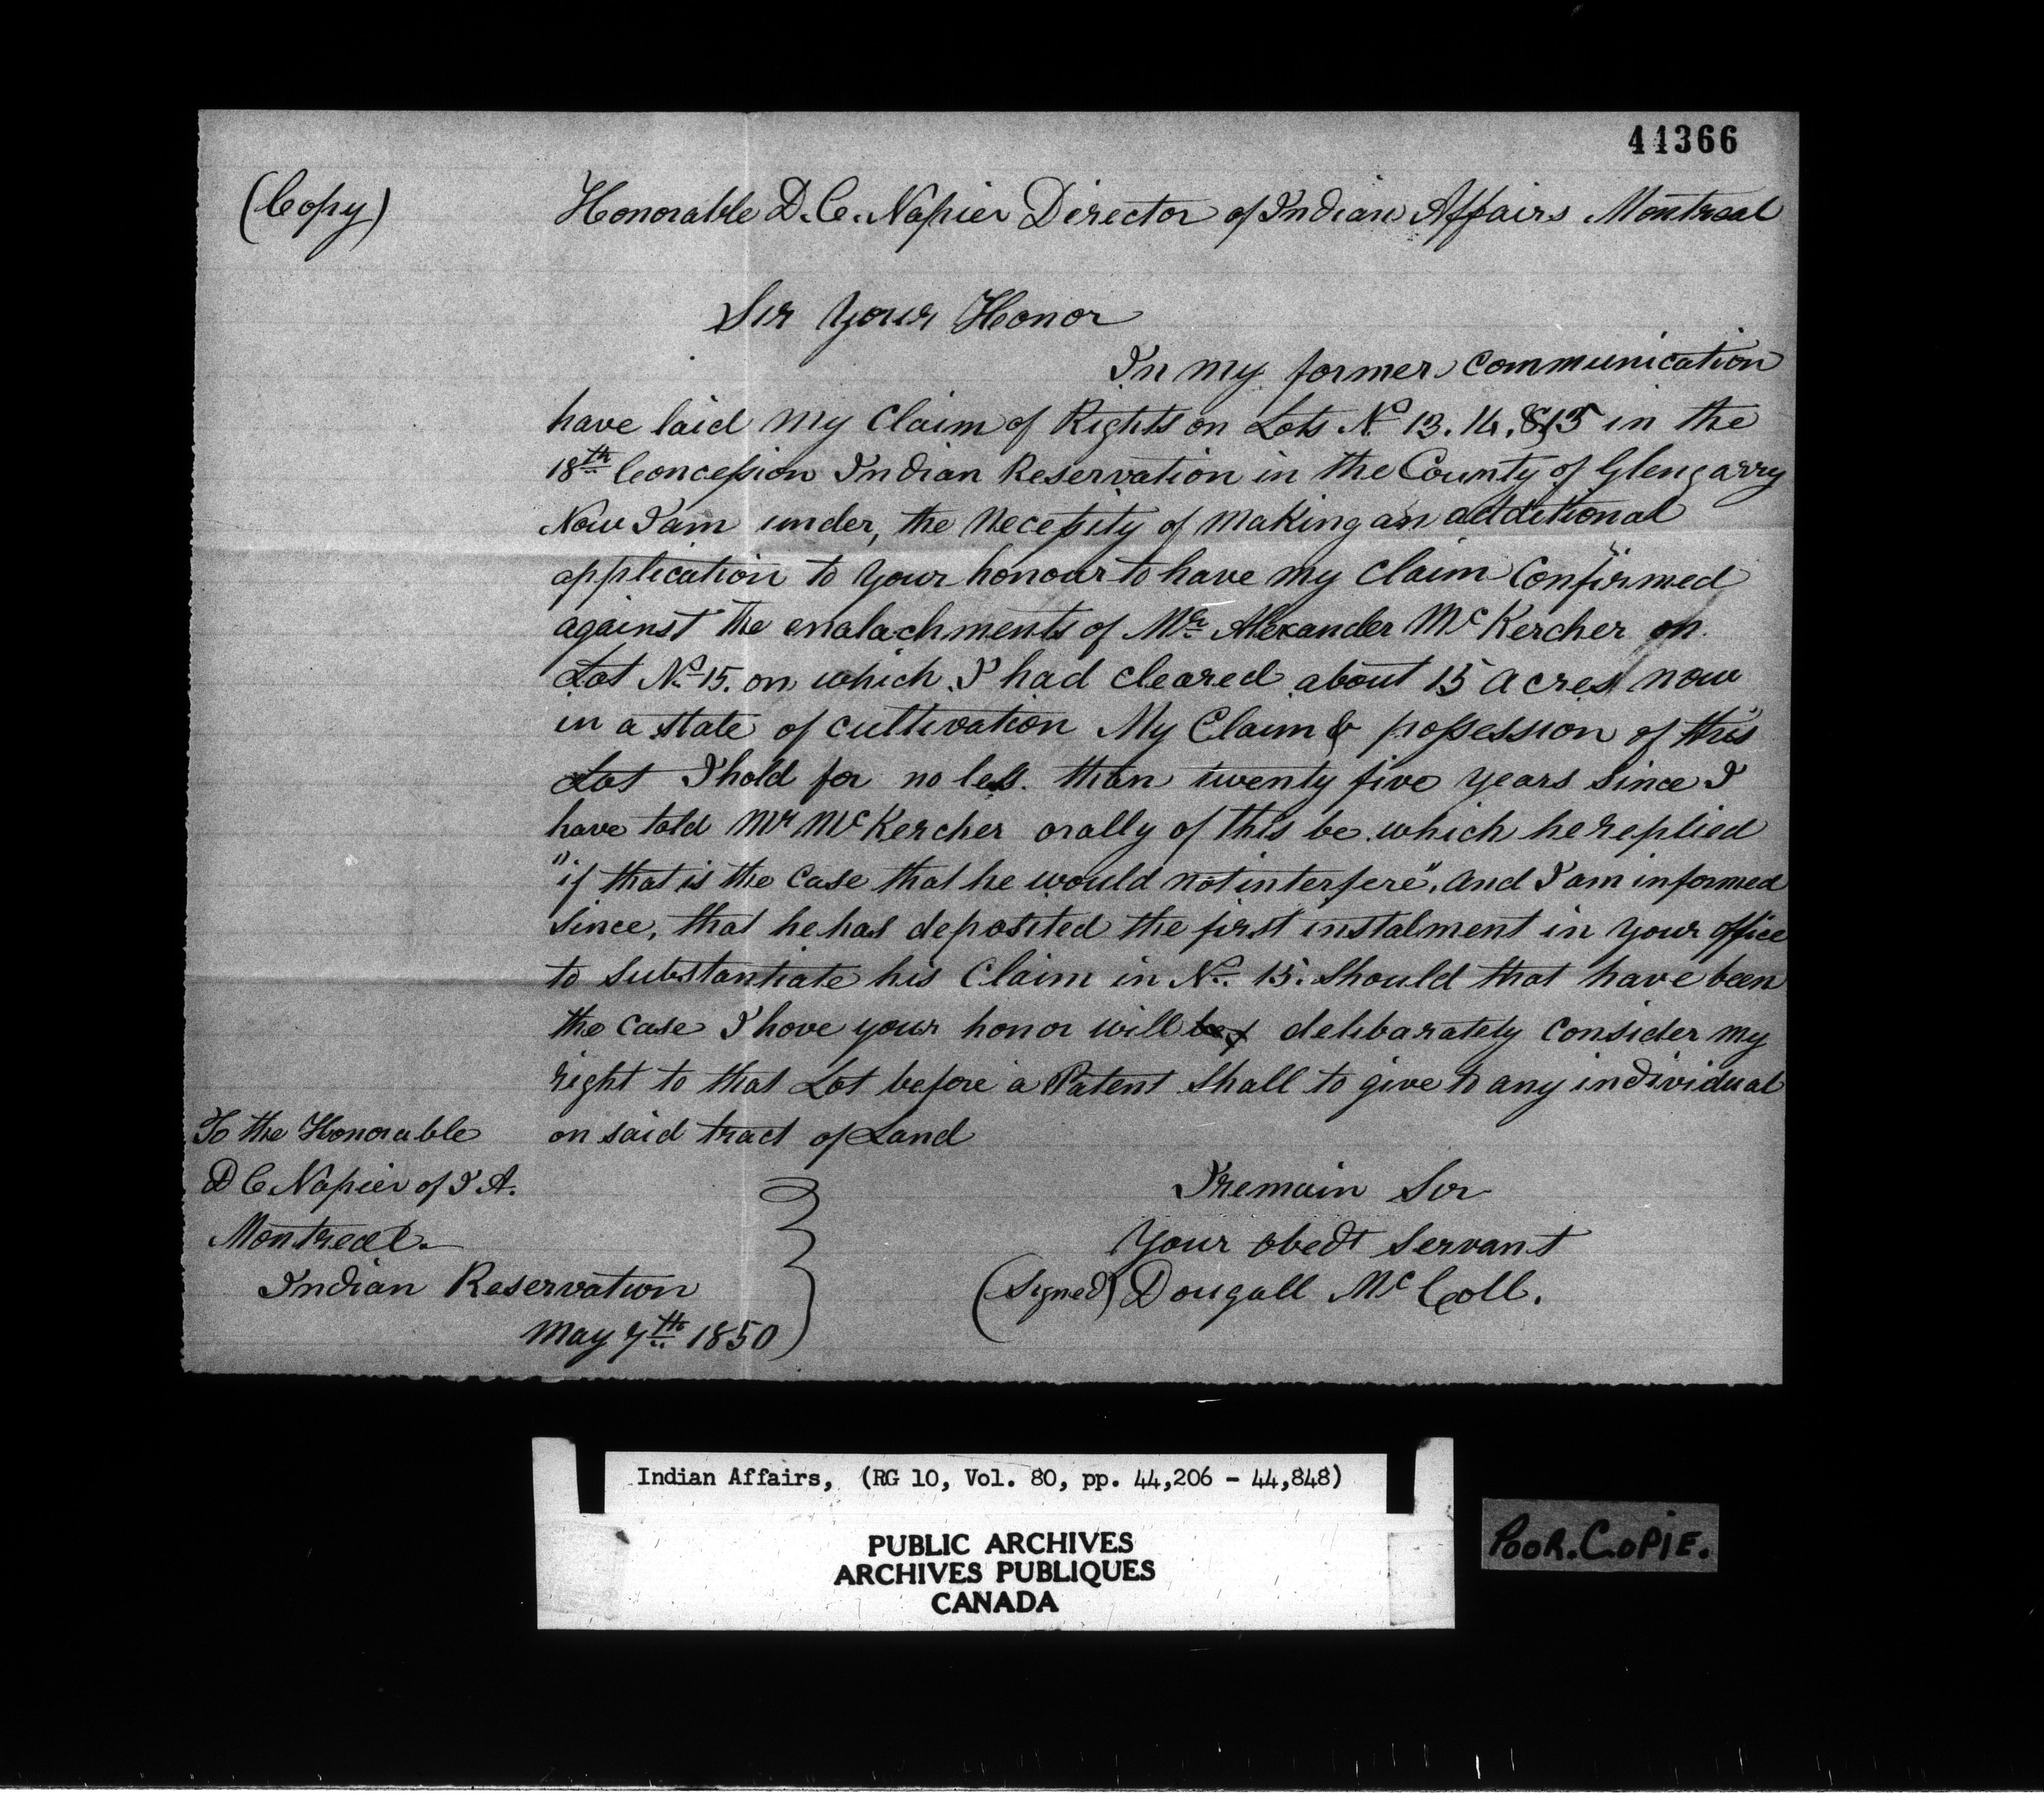 44366
(Copy)
Honorable D. C. Napier Director of Indian Affairs Montreal
Sir Your Honor
In my former communication
have laid my Claim of Rights on Lots No 13. 14. & 15 in the
18th Concession Indian Reservation in the County of Glengarry
Now I am under, the Necessity of Making an additional
application to your honour to have my Claim Confirmed
against the enalachments of Mr Alexander McKercher on
Lot No 15. on which I had cleared about 15 acres now
in a state of cultivation My Claim & possession of this
Lot I hold for no less than twenty five years since I
have told Mr McKercher orally of this be which he replied
"if that is the Case that he would not interfere", and I am informed
since, that he has deposited the first instalment in your office
to substantiate his Claim in No. 15. Should that have been
the Case I hove your honor will deliberately Consider my
right to that Lot before a Patent shall to give to any individual
on said tract of Land
I remain Sir
Your obedt Servant
(Signed) Dougall McColl.
To the Honorable
D C Napier of I A.
Montreal
Indian Reservation
May 7th 1850
Indian Affairs, (RG 10, Vol. 80, pp. 44,206 - 44,848)
PUBLIC ARCHIVES
ARCHIVES PUBLIQUES
CANADA
POOR.COPIE.